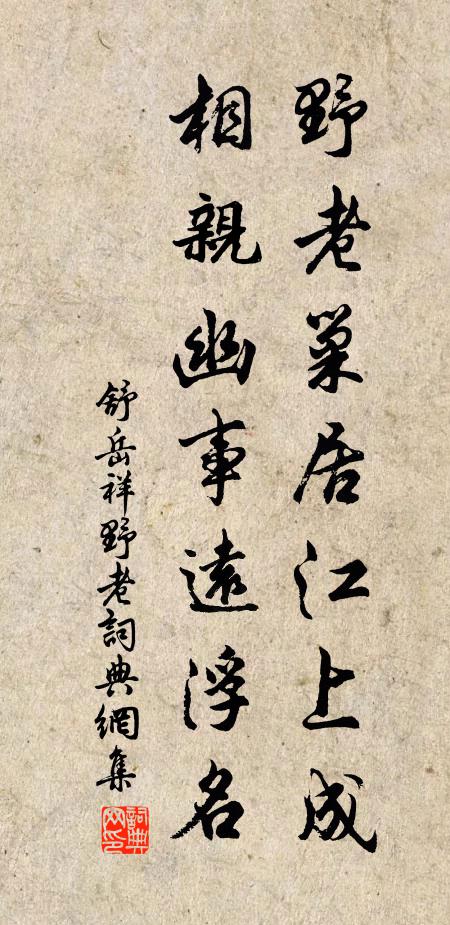 野老巢居江上成
相親幽事遠浮名
舒岳祥野老詞典網集
詞典網印